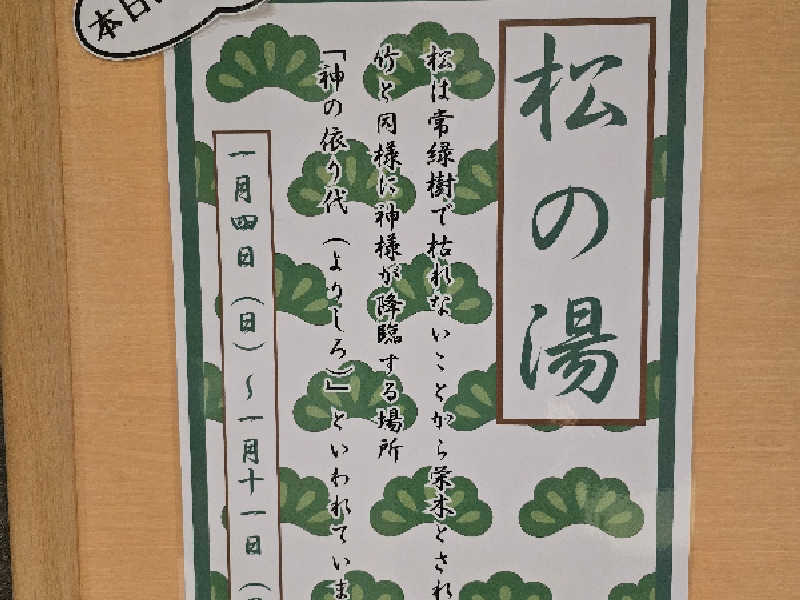 本日
松の湯
松は常緑樹で枯れないことから栄木とされ
竹と同様に神様が降臨する場所
「神の依り代（よりしろ）」といわれていま
一月四日（日）～一月十一日（